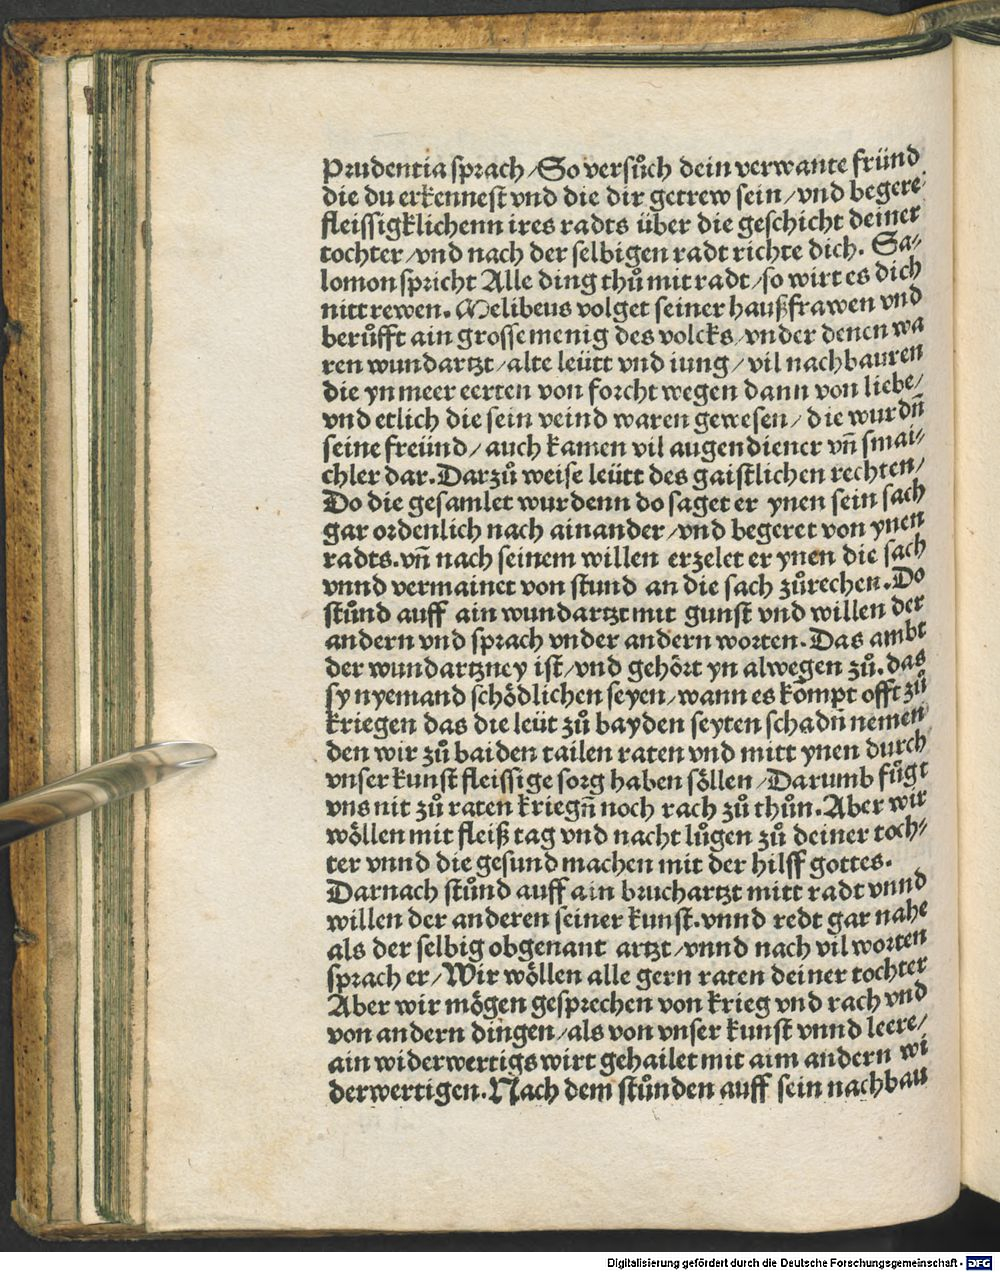 Prudentia sprach /So versůch dein verwante fründ
die du erkennest vnd die dir getrew sein /vnd begere
fleissigklichenn ires radts über die geschicht deiner
tochter /vnd nach der selbigen radt richte dich. Sa⸗
lomon spricht Alle ding thů mit radt /so wirt es dich
nitt rewen. Melibeus volget seiner haußfrawen vnd
berůfft ain grosse menig des volcks /vnder denen wa
ren wundartzt /alte leütt vnd iung / vil nachbauren
die yn meer eerten von forcht wegen dann von liebe/
vnd etlich die sein veind waren gewesen / die wurdn̄
seine freünd / auch kamen vil augendiener vn̄ smai⸗
chler dar. Darzů weise leütt des gaistlichen rechten/
Do die gesamlet wurdenn do saget er ynen sein sach
gar ordenlich nach ainander /vnd begeret von ynen
radts. vn̄ nach seinem willen erzelet er ynen die sach
vnnd vermainet von stund an die sach zůrechen. Do
stůnd auff ain wundartzt mit gunst vnd willen der
andern vnd sprach vnder andern worten. Das ambt
der wundartzney ist /vnd gehört yn alwegen zů. das
sy nyemand schödlichen seyen /wann es kompt offt zů
kriegen das die leüt zů bayden seyten schadn̄ nemen
den wir zů baiden tailen raten vnd mitt ynen durch
vnser kunst fleissige sorg haben söllen /Darumb fůgt
vns nit zů raten kriegn̄ noch rach zů thůn. Aber wir
wöllen mit fleiß tag vnd nacht lůgen zů deiner toch⸗
ter vnnd die gesund machen mit der hilff gottes.
Darnach stůnd auff ain bruchartzt mitt radt vnnd
willen der anderen seiner kunst. vnnd redt gar nahe
als der selbig obgenant artzt /vnnd nach vil worten
sprach er /Wir wöllen alle gern raten deiner tochter
Aber wir mögen gesprechen von krieg vnd rach vnd
von andern dingen /als von vnser kunst vnnd leere/
ain widerwertigs wirt gehailet mit aim andern wi
derwertigen. Nach dem stůnden auff sein nachbau
Digitalisierung gefördert durch die Deutsche Forschungsgemeinschaft - DFG